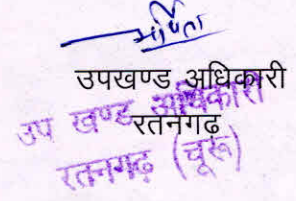 उपखण्ड अधिकारी
रतनगढ़
उप खण्ड अधिकारी
रतनगढ़ (चूरू)